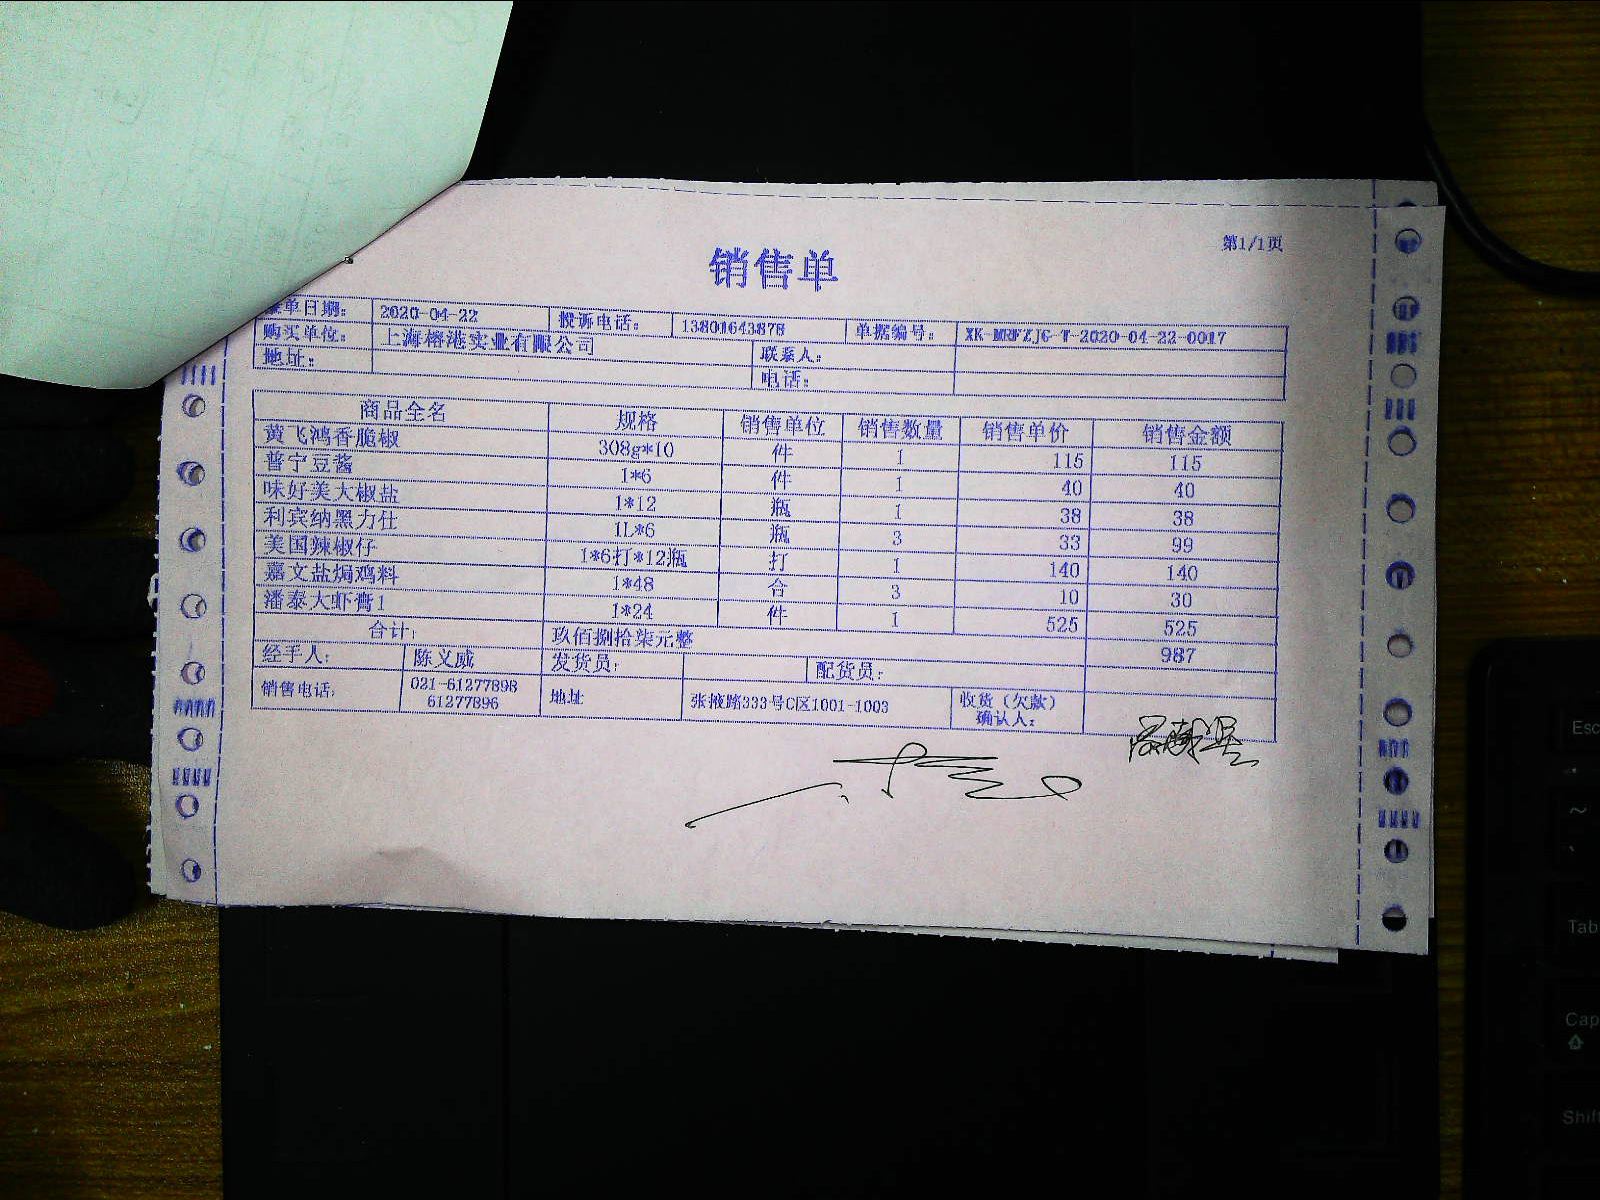 第1/1页
销售单
单日期： 2020-04-22 投诉电话： 13801643878 单据编号： XK-MRFZJG-T-2020-04-22-0017
购买单位： 上海榕港实业有限公司 联系人：
地址： 电话：
商品全名 规格 销售单位 销售数量 销售单价 销售金额
黄飞鸿香脆椒 308g*10 件 1 115 115
普宁豆酱 1*6 件 1 40 40
味好美大椒盐 1*12 瓶 1 38 38
利宾纳黑力仕 1L*6 瓶 3 33 99
美国辣椒仔 1*6打*12瓶 打 1 140 140
嘉文盐焗鸡料 1*48 合 3 10 30
潘泰大虾膏1 1*24 件 1 525 525
合计： 玖佰捌拾柒元整 987
经手人： 陈义威 发货员： 配货员：
销售电话： 021-61277898 61277896 地址 张掖路333号C区1001-1003 收货（欠款）确认人：
Esc
~
Tab
Cap
Shift